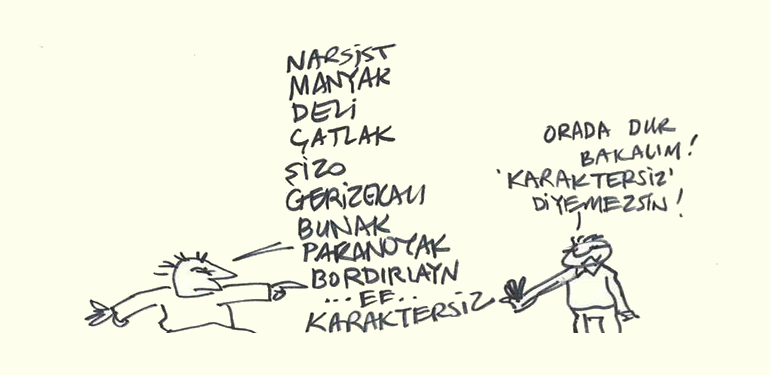 NARSİST
MANYAK
DELİ
ÇATLAK
ŞİZO
GERİZEKALI
BUNAK
PARANOYAK
BORDIRLAYN
...EE..
KARAKTERSİZ
ORADA DUR
BAKALIM!
'KARAKTERSİZ'
DİYEMEZSİN!